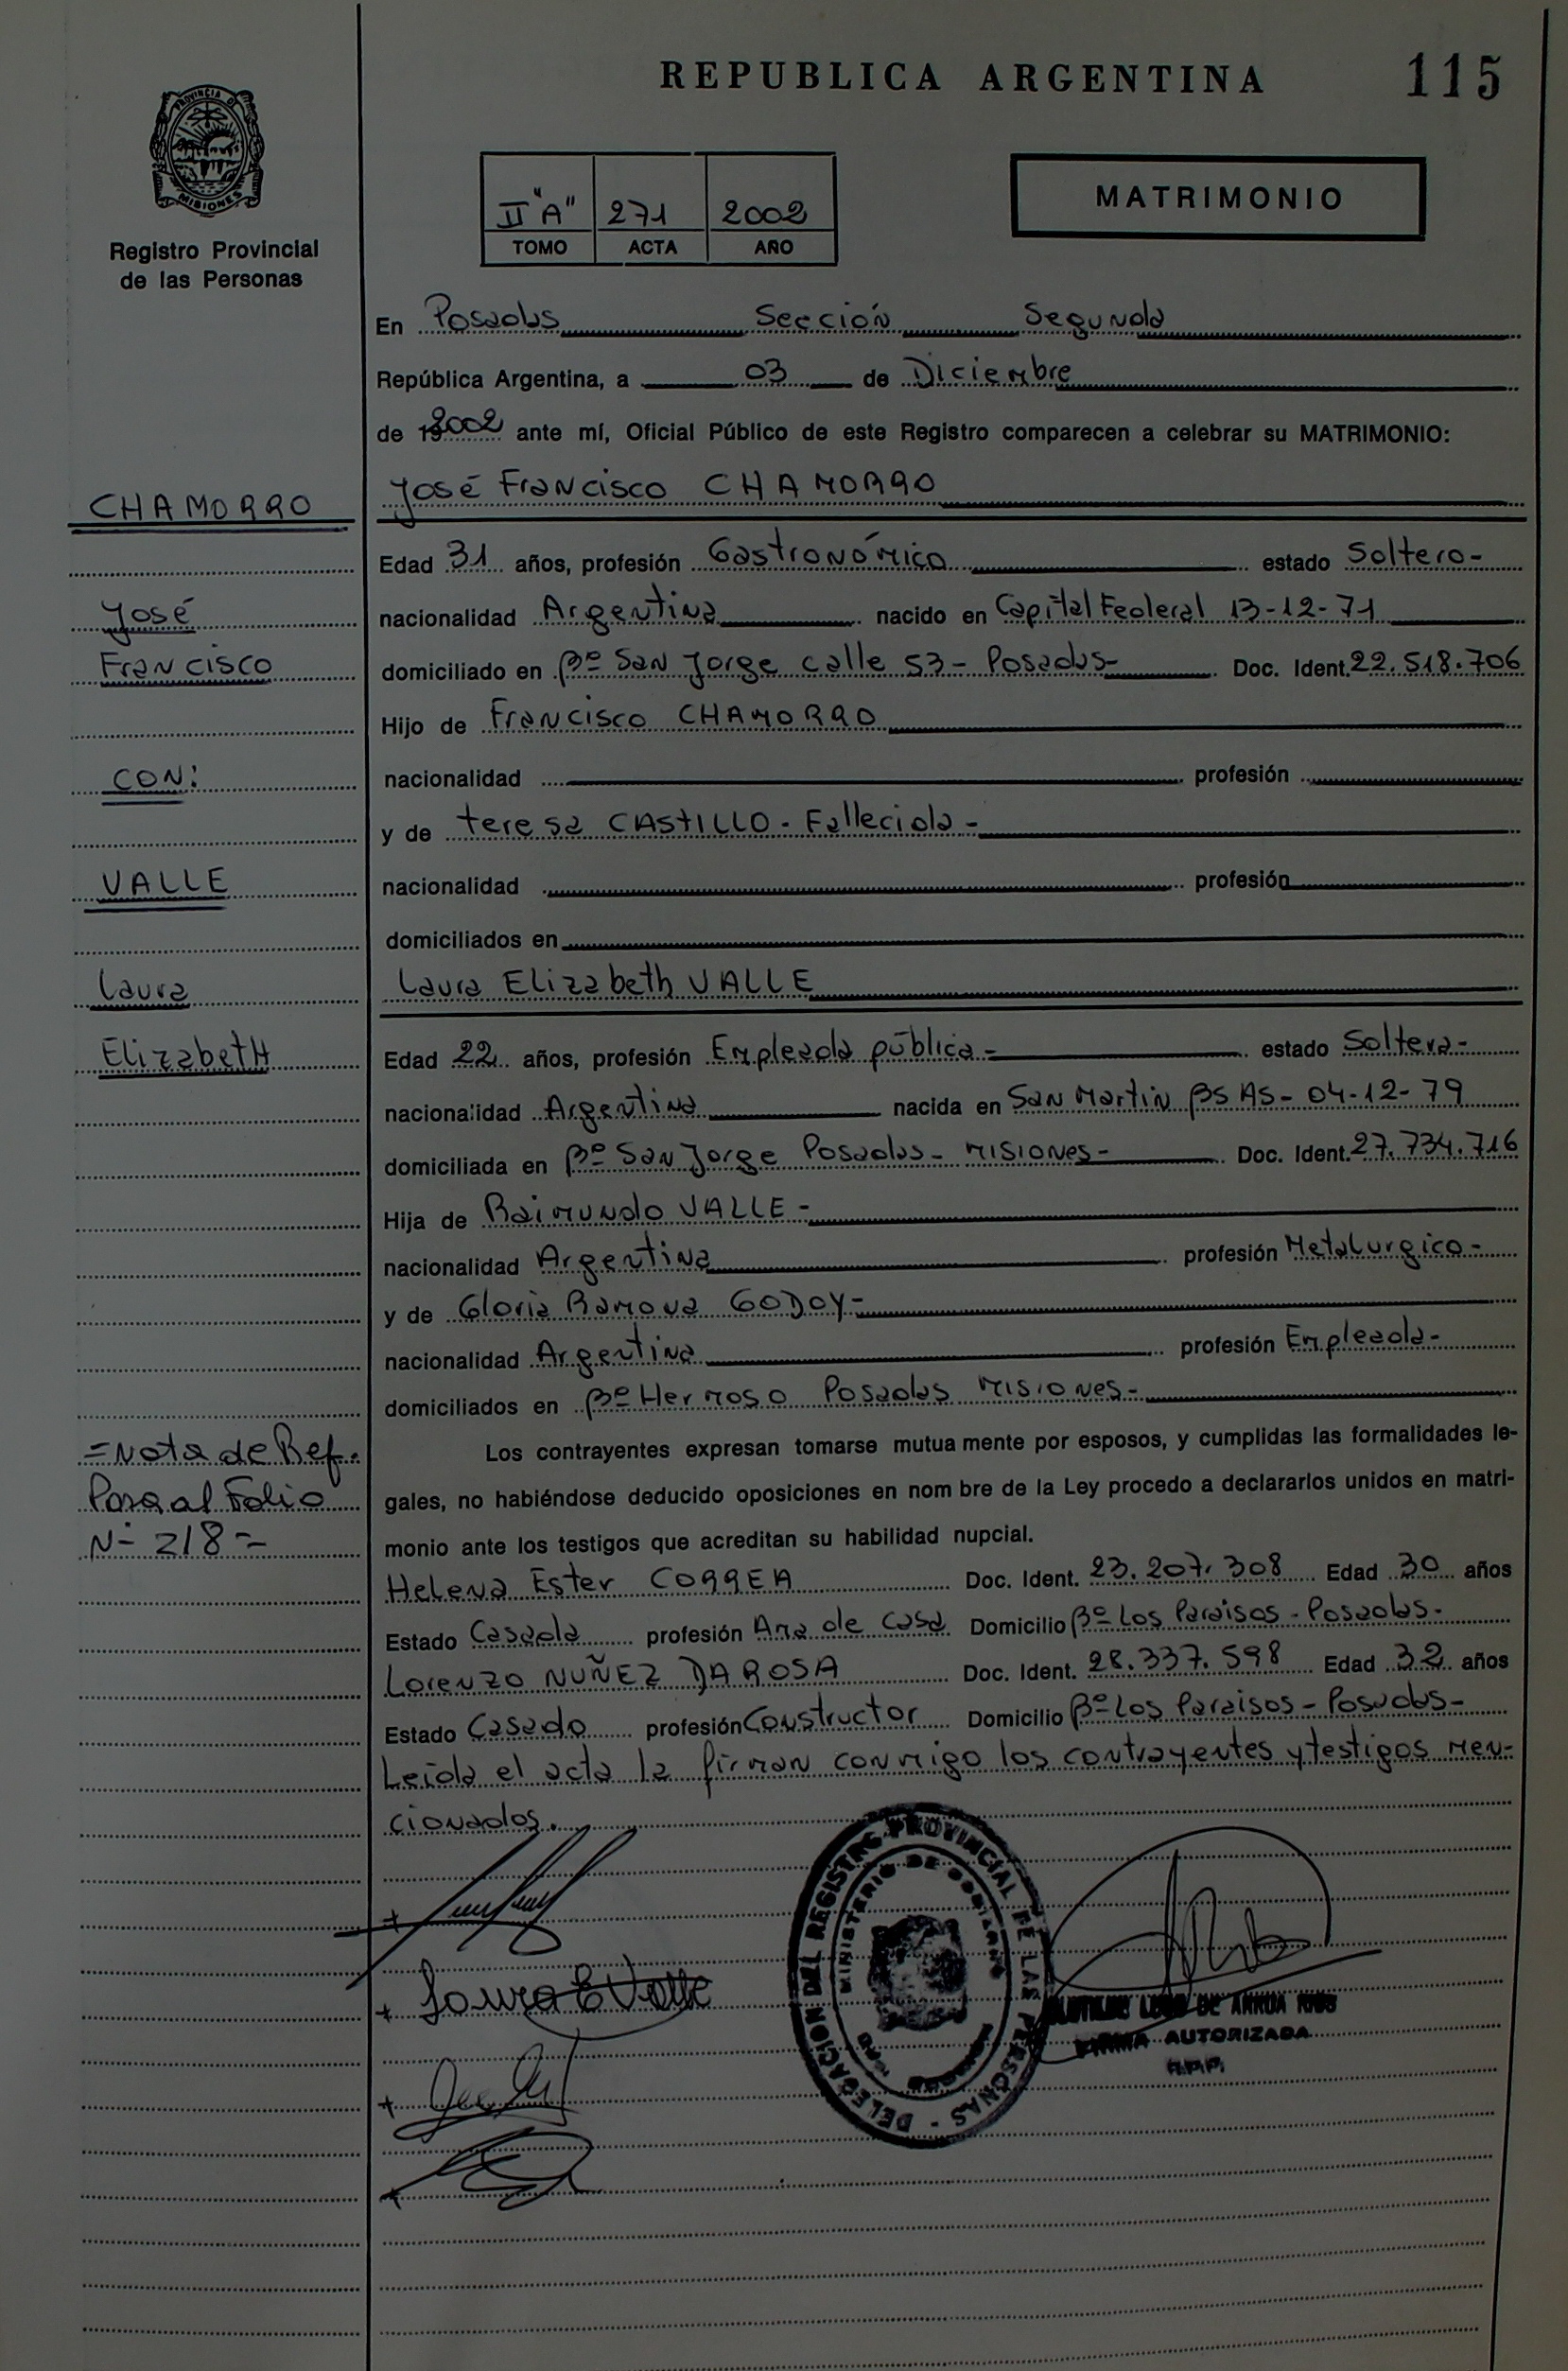 REPUBLICA ARGENTINA
115
PROVINCIA DE
MISIONES
Registro Provincial
de las Personas
II "A" 271 2002
TOMO ACTA AÑO
MATRIMONIO
En Posadas Sección Segunda
República Argentina, a 03 de Diciembre
de 2002 ante mí, Oficial Público de este Registro comparecen a celebrar su MATRIMONIO:
CHAMORRO
José Francisco CHAMORRO
Edad 31 años, profesión Gastronómico estado Soltero-
José
nacionalidad Argentina nacido en Capital Federal 13-12-71
Francisco
domiciliado en Bº San Jorge calle 53- Posadas- Doc. Ident. 22.518.706
Hijo de Francisco CHAMORRO
CON:
nacionalidad profesión
y de teresa CASTILLO - Fallecida -
VALLE
nacionalidad profesión
domiciliados en
Laura
Laura Elizabeth VALLE
Elizabeth
Edad 22 años, profesión Empleada pública - estado Soltera-
nacionalidad Argentina nacida en San Martin BS AS - 04-12-79
domiciliada en Bº San Jorge Posadas - MISIONES - Doc. Ident. 27.734.716
Hija de Raimundo VALLE -
nacionalidad Argentina profesión Metalurgico -
y de Gloria Ramona GODOY -
nacionalidad Argentina profesión Empleada -
domiciliados en Bº Hermoso Posadas MISIONES -
=Nota de Ref.
Pasa al Folio
Nº 218=
Los contrayentes expresan tomarse mutua mente por esposos, y cumplidas las formalidades le-
gales, no habiéndose deducido oposiciones en nom bre de la Ley procedo a declararlos unidos en matri-
monio ante los testigos que acreditan su habilidad nupcial.
Helena Ester CORREA Doc. Ident. 23.207.308 Edad 30 años
Estado Casada profesión Ama de casa Domicilio Bº Los Paraisos - Posadas -
Lorenzo NUÑEZ DA ROSA Doc. Ident. 28.337.598 Edad 32 años
Estado Casado profesión Constructor Domicilio Bº Los Paraisos - Posadas -
Leida el acta la firman conmigo los contrayentes y testigos men-
cionados.
DELEGACION DEL REGISTRO PROVINCIAL DE LAS PERSONAS -
MINISTERIO DE GOBIERNO
Laura E Valle
DE ARRUA
FIRMA AUTORIZADA
R.P.P.